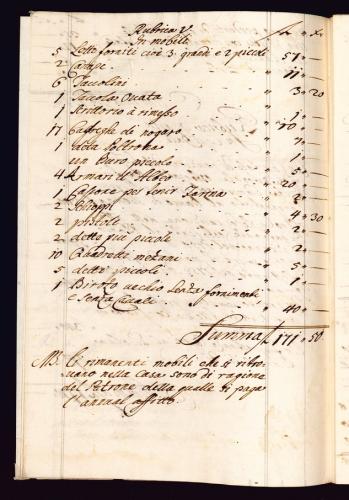 Rubrica V.
In mobili
5 Letto forniti cioè 3 grandi e 2 piccoli " 57 " —
2 " 11 " —
6 Taccolini " 3 " 20
1 Taccola Ovata " 1 " —
1 Scrittorio à rimesso " 10 " —
17 Cadreghe di nogaro
1 detta Poltrona " 1 " —
1 un Burò piccolo " 7 " —
4 Armari d'Albeo " 5 " —
1 Cassone per tenir Farina " 20 " —
2 Schioppi " 4 " 30
2 pistole " 2 " —
2 dette più piccole " 2 " —
10 Quadretti mezani " 5 " —
5 detti piccoli " 1 " —
1 Biroto vechio senza fornimenti
e senza Cavali " 40 " —
Summa f. 171 " 50
NB. Li rimanenti mobili che si ritro-
vano nella Casa sono di ragione
del Patrone della quale si paga
l'annual affitto.